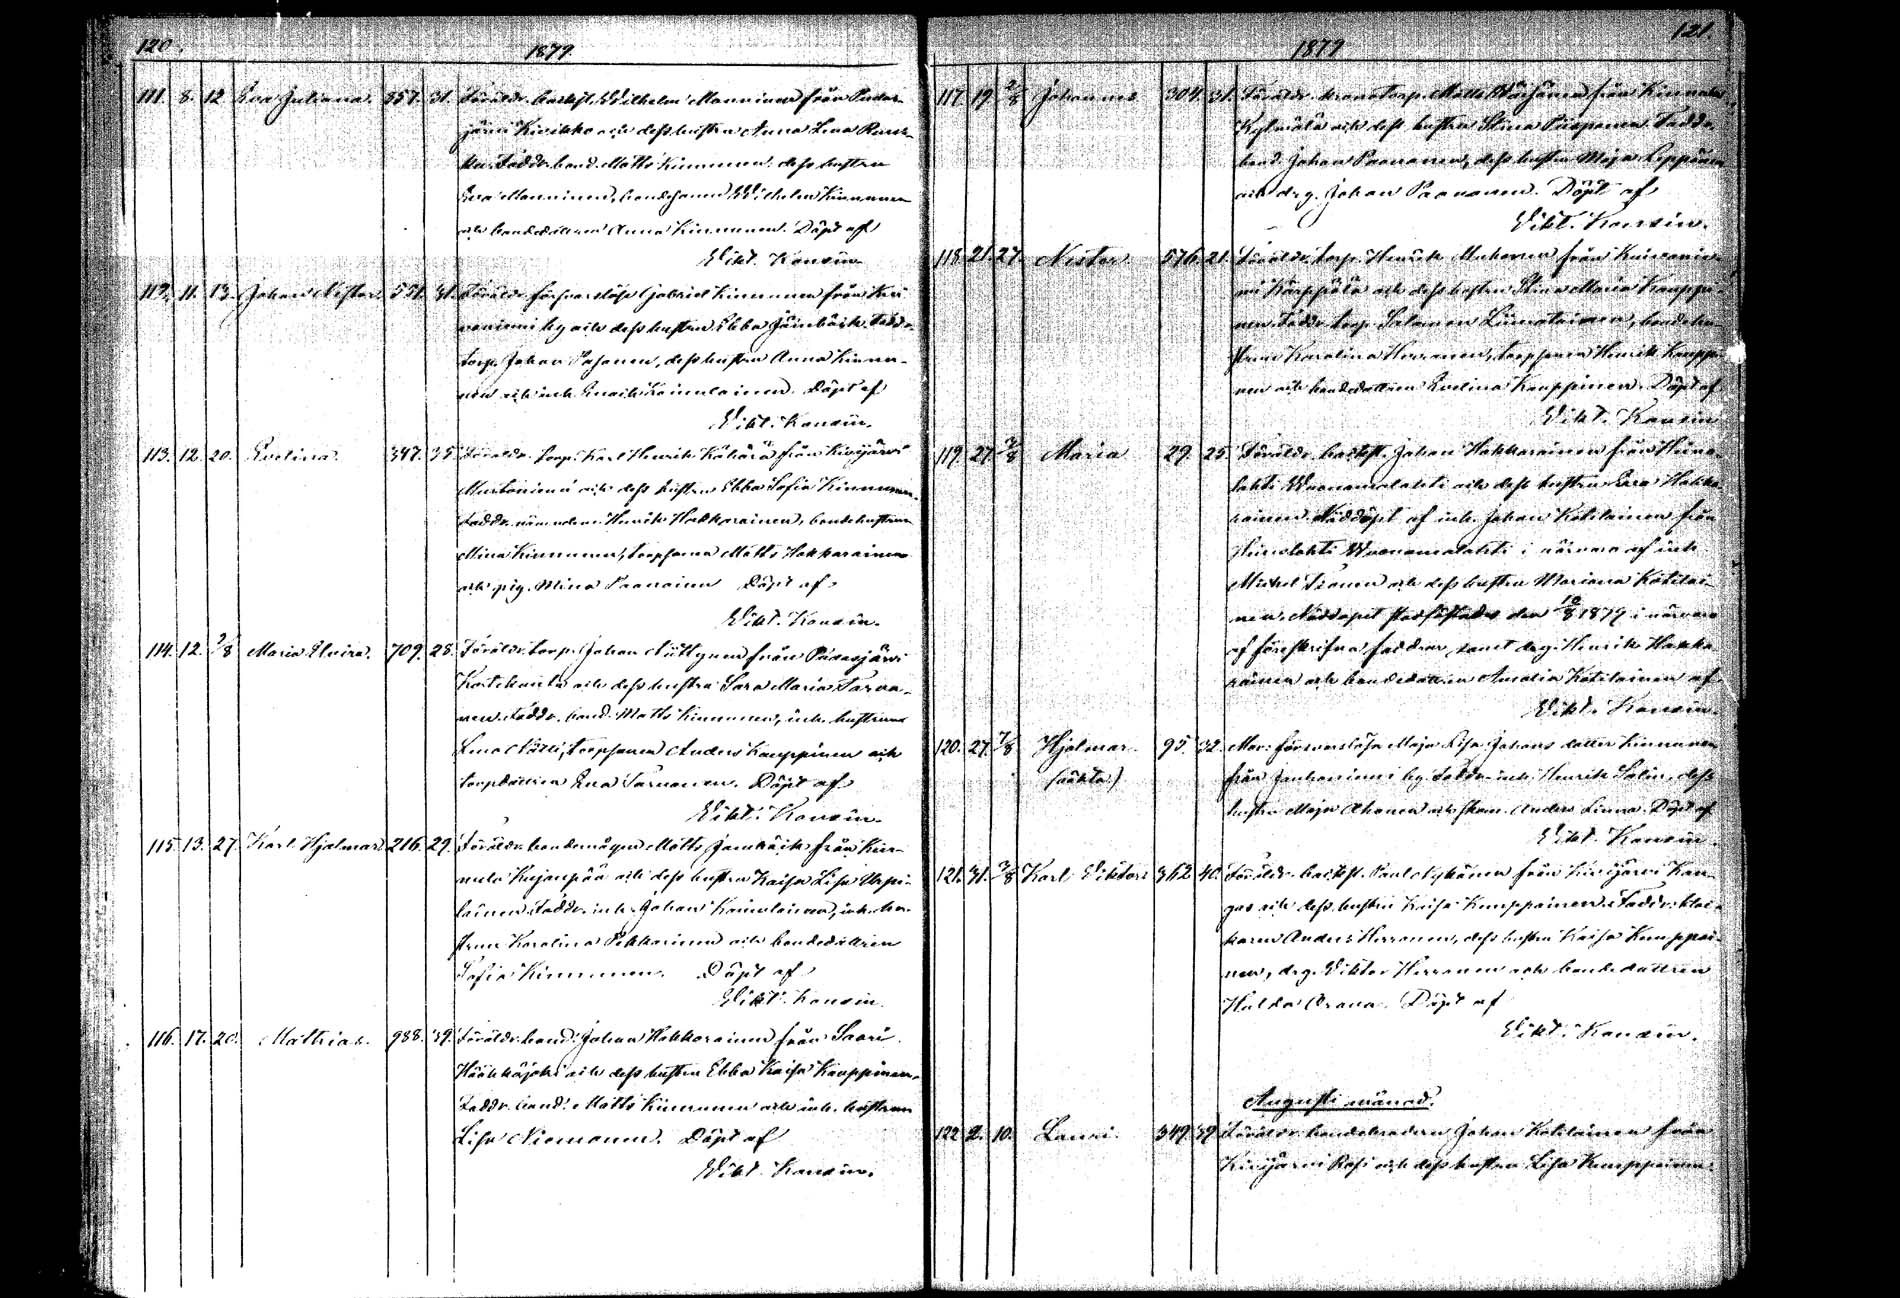 120.
1879.
111. 8. 12. Eva Juliana. 357. 31. Föräldr. backst. Wilhelm Manninen från Pudas-
järvi Kivikko och dess hustru Anna Lena
Faddr. bond. Matts Kinnunen, dess hustru
Eva Manninen, bondesonen Wilhelm Kinnunen
och bondedottren Anna Kinnunen. Döpt af
Vikt. Konsin.
112. 11. 13. Johan Nestor. 551. 31. Föräldr. försvarslöse Gabriel Kinnunen från
by och dess hustru Ebba Jäinbäck. Faddr.
torp. Johan Pasanen, dess hustru Anna Kinnu-
nen och inh. Kainulainen. Döpt af
Vikt. Konsin.
113. 12. 20. Evelina. 347. 35. Föräldr. torp. Karl Henrik Kähärä från Kivijärvi
Mustaniemi och dess hustru Ebba Sofia Kinnunen.
Faddr. nämndem. Henrik Hakkarainen, bondehustrun
Mina Kinnunen, torpsonen Matts Hakkarainen
och pig. Mina Paanainen. Döpt af
Vikt. Konsin.
114. 12. 3/8 Maria Elvira. 709. 28. Föräldr. torp. Johan från Pudasjärvi
och dess hustru Sara Maria Tarva-
nen. Faddr. bond. Matts Kinnunen, inh. hustrun
Lena torpsonen Anders Kauppinen och
torpdottren Eva Tarvanen. Döpt af
Vikt. Konsin.
115. 13. 27. Karl Hjalmar. 216. 29. Föräldr. bondemågen Matts Jambäck från Kin-
nula Kujanpää och dess hustru Kaisa Lisa Urpi-
lainen. Faddr. inh. Johan Kainulainen, inh. hu-
strun Karolina Pekkarinen och bondedottren
Sofia Kinnunen. Döpt af
Vikt. Konsin.
116. 17. 20. Mathias. 988. 39. Föräldr. bond. Johan Hakkarainen från Saari
Hääkkäjoki och dess hustru Ebba Kaisa Kauppinen.
Faddr. bond. Matts Kinnunen och inh. hustrun
Lisa Niemonen. Döpt af
Vikt. Konsin.
121.
1879
117. 19. 2/8 Johannes. 304. 31. Föräldr. kronotorp. Matts från Kinnula
och dess hustru Stina Piispanen. Faddr.
bond. Johan Paananen, dess hustru Maja Leppänen
och drg. Johan Paananen. Döpt af
Vikt. Konsin.
118. 21. 27. Nestor. 576. 21. Föräldr. torp. Henrik Muhonen från
Karppala och dess hustru Stina Maria Kauppi-
nen. Faddr. torp. Salomon Liimatainen, bondehu-
strun Karolina Herranen, torpsonen Henrik Kauppi-
nen och bondedottren Evelina Kauppinen. Döpt af
Vikt. Konsin
119. 27. 3/8 Maria 29. 25. Föräldr. backst. Johan Hakkarainen från Heina-
lahti Wuonamalahti och dess hustru Eva Hakka-
rainen. Nöddöpt af inh. Johan Kotilainen från
Heinolahti Wuonamalahti i närvaro af inh.
Mickel och dess hustru Mariana Kotilai-
nen. Nöddopet stadfästades den 10/8 1879 i närvaro
af föreskrifna faddrar, samt drg. Henrik Hakka-
rainen och bondedottren Amalia Kotilainen af
Vikt. Konsin.
120. 27. 7/8 Hjalmar. 95. 32. Mor: försvarslösa Maja Lisa Johans dotter Kinnunen
(oäkta.) från Jauhoniemi by. Faddr. inh. Henrik Salin, dess
hustru Maja Ahonen och skom. Anders Linna. Döpt af
Vikt. Konsin.
121. 31. 3/8 Karl Viktor. 362 40. Föräldr. backst. Paul från Kivijärvi Kan-
gas och dess hustru Kaisa Kumppainen. Faddr. kloc-
karen Anders Herranen, dess hustru Kaisa Kumppai-
nen, drg. Viktor Herranen och bondedottren
Hulda Orava. Döpt af
Vikt. Konsin.
Augusti månad.
122. 2. 10. Lauri. 349. 39. Föräldr. bondebrodern Johan Kotilainen från
Kivijärvi Rasi och dess hustru Lisa Kumppainen.